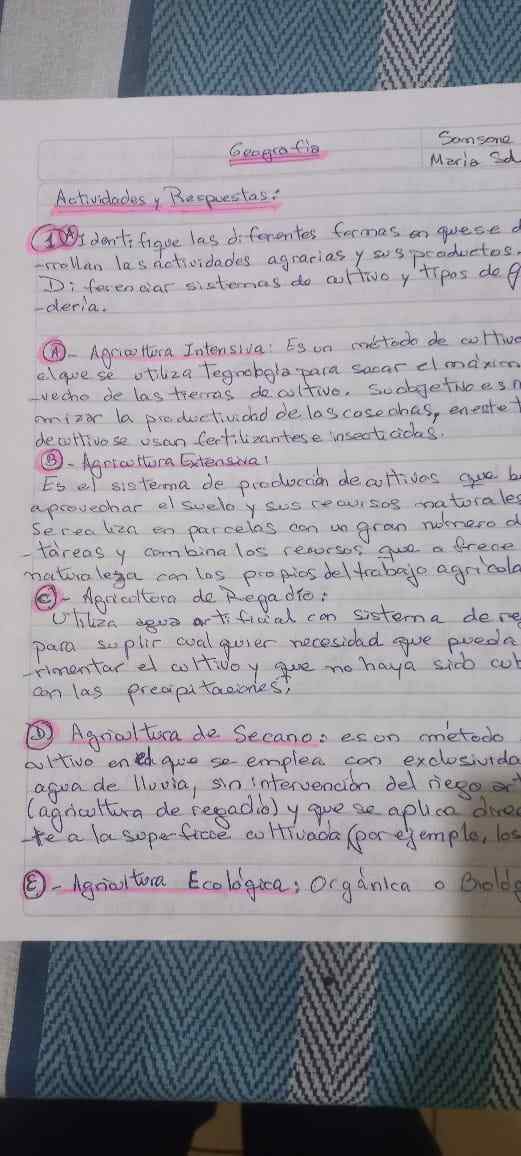 Geografia
Samsone
Maria Sd
Actividades y Respuestas:
1 A Identifique las diferentes formas en que se d
-rrollan las actividades agrarias y sus productos.
Diferenciar sistemas de cultivo y tipos de g
-dería.
A - Agricultura Intensiva: Es un método de cultivo
el que se utiliza Tegnología para sacar el máxim
-vecho de las tierras de cultivo. Su objetivo es m
mizar la productividad de las cosechas, en este t
de cultivo se usan fertilizantes e insecticidas.
B - Agricultura Extensiva:
Es el sistema de producción de cultivos que b
aprovechar el suelo y sus recursos naturales
Se realiza en parcelas con un gran número d
-táreas y combina los recursos que a frece
naturaleza con los propios del trabajo agrícola
C - Agricultura de Regadío:
Utiliza agua artificial con sistema de re
para suplir cualquier necesidad que pueda
-rimentar el cultivo y que no haya sido cub
con las precipitaciones;
D Agricultura de Secano: es un método
cultivo en el que se emplea con exclusivida
agua de lluvia, sin intervención del riego art
(agricultura de regadío) y que se aplica direc
-te a la superficie cultivada (por ejemplo, los
E - Agricultura Ecológica; Orgánica o Biológ